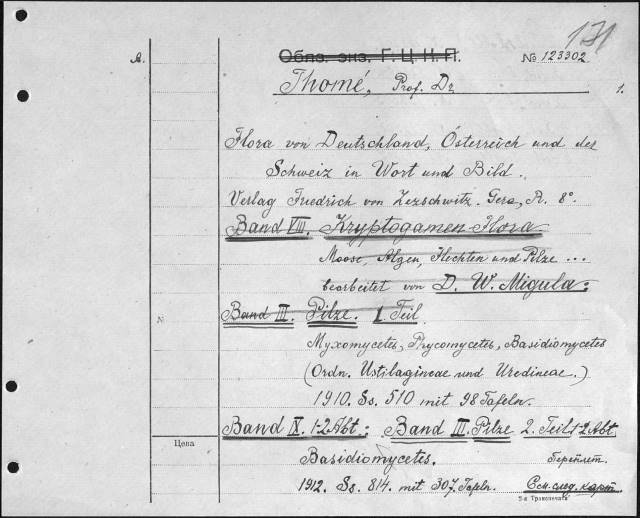 171
Обяз. экз. Г. Ц. К. П.
№ 123302
А.
Thomé, Prof. Dr
1.
Flora von Deutschland, Österreich und der
Schweiz in Wort und Bild.
Verlag Friedrich von Zezschwitz. Gera, R. 8°
Band VIII. Kryptogamen-Flora
Moose, Algen, Flechten und Pilze ...
bearbeitet von D. W. Migula:
Band III. Pilze. 1. Teil.
№
Myxomycetes, Phycomycetes, Basidiomycetes
(Ordn. Ustilagineae und Uredineae.)
1910. Ss. 510 mit 98 Tafeln.
Band IX. 1-2 Abt.: Band III. Pilze 2. Teil 1-2 Abt.
Цена
Basidiomycetes. Переплет.
1912. Ss. 814. mit 307. Tafeln. См. след. карт.